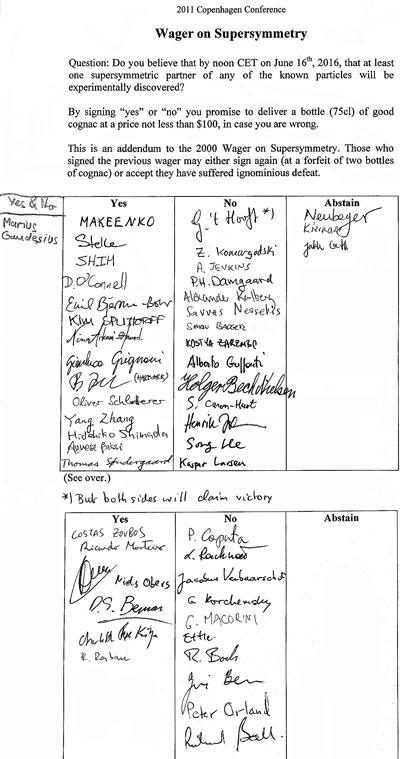 2011 Copenhagen Conference
Wager on Supersymmetry
Question: Do you believe that by noon CET on June 16th, 2016, that at least
one supersymmetric partner of any of the known particles will be
experimentally discovered?
By signing “yes” or “no” you promise to deliver a bottle (75cl) of good
cognac at a price not less than $100, in case you are wrong.
This is an addendum to the 2000 Wager on Supersymmetry. Those who
signed the previous wager may either sign again (at a forfeit of two bottles
of cognac) or accept they have suffered ignominious defeat.
Yes & No
Marius
Yes
No
Abstain
MAKEENKO
G. 't Hooft *)
Neuberger
Stelle
Z. Komargodski
SHIH
A. JENKINS
D. O'Connell
P.H. Damgaard
Emil Bjerrum-Bohr
Alexander
KIM SPLITTORFF
Savvas Nesseris
Nima Arkani-Hamed
SIMON BADGER
Gianluca Grignani
KOSTYA ZAREMBO
(HARTMARK)
Alberto Guffanti
Oliver Schlotterer
Holger Bech Nielsen
Yang Zhang
S. Caron-Huot
Hidehiko Shimada
Henrik
Agnese Bissi
Song He
Thomas Søndergaard
Kasper Larsen
(See over.)
*) But both sides will claim victory
Yes
No
Abstain
COSTAS ZOUBOS
P. Caputa
Ricardo Monteiro
L. Rachwał
Niels Obers
Jacobus Verbaarschot
D.S. Berman
G. Korchemsky
G. MACORINI
Ettle
R. Boels
Peter Orland
Richard Ball